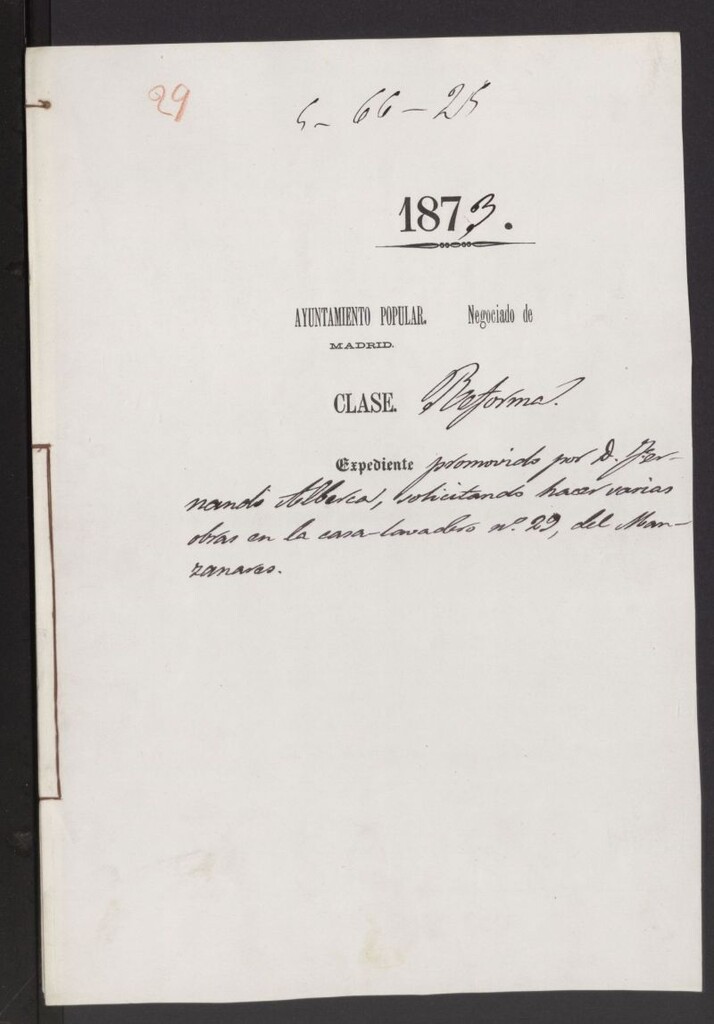 29
5-66-25
1873.
AYUNTAMIENTO POPULAR. Negociado de
MADRID.
CLASE. Reforma.
Expediente promovido por D. Fer-
nando Alberca, solicitando hacer varias
obras en la casa-lavadero nº. 29, del Man-
zanares.